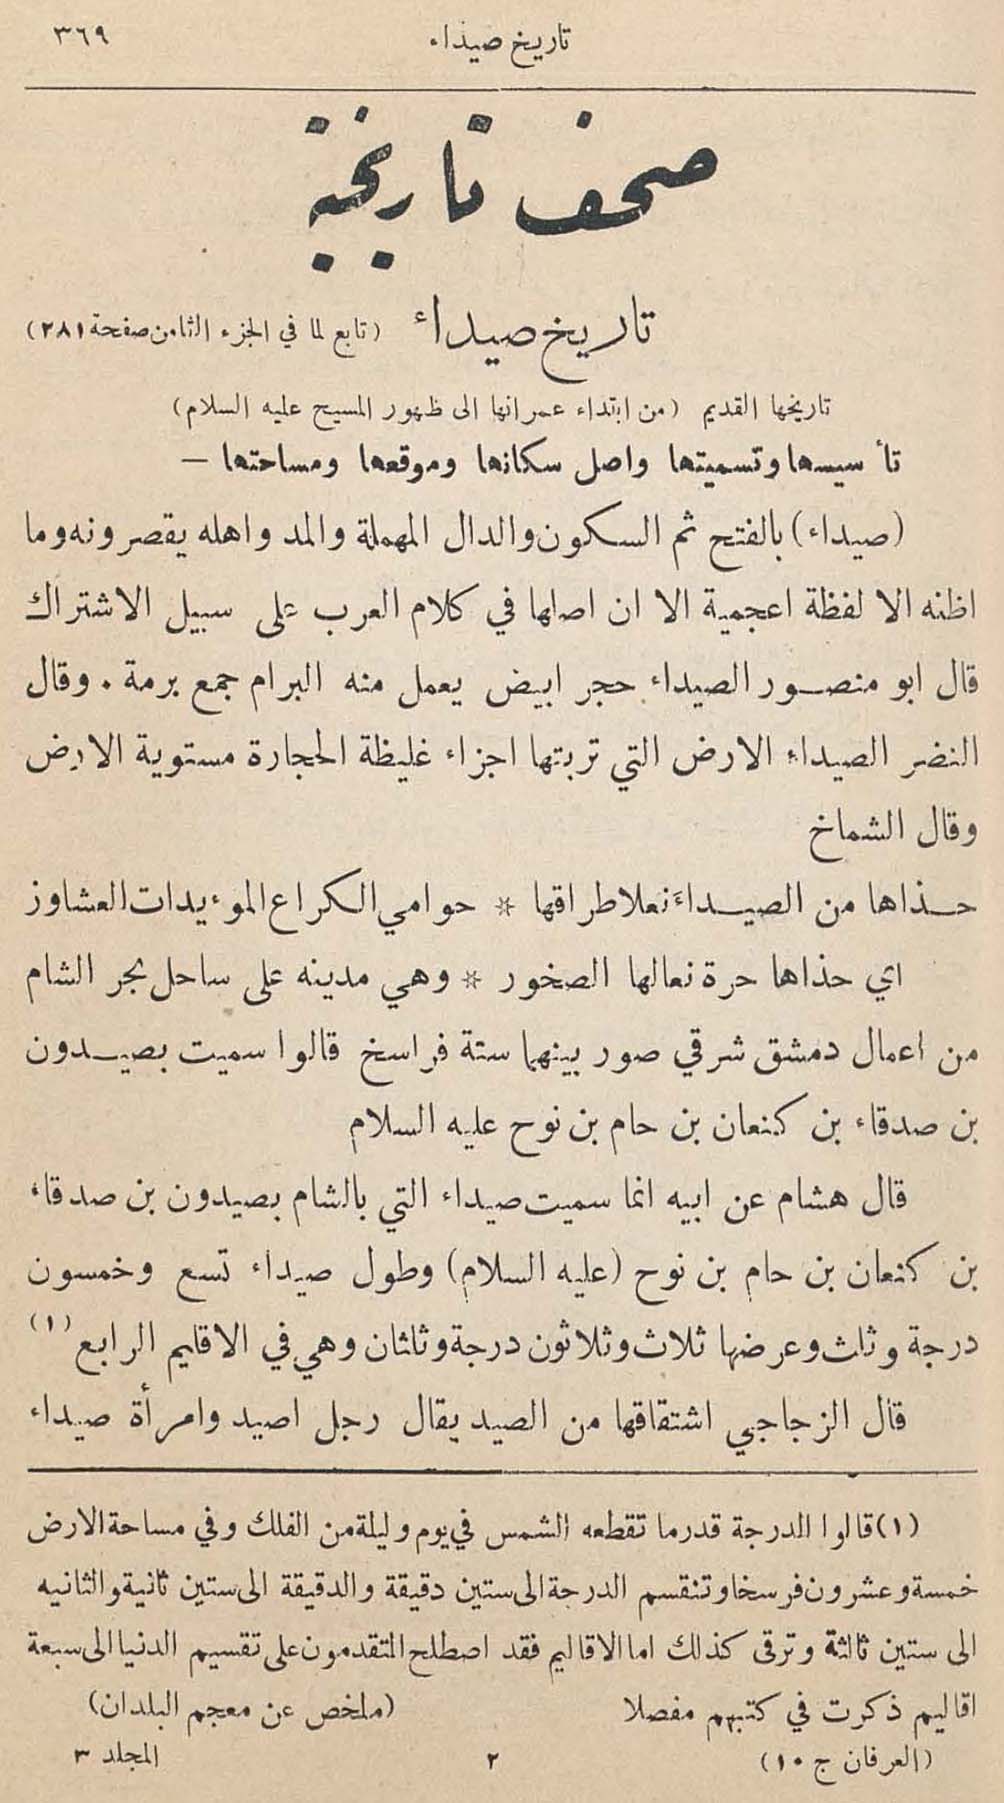 تاريخ صيداء ٣٦٩
صحف تاريخية
تاريخ صيداء (تابع لما في الجزء الثامن صفحة ٢٨١)
تاريخها القديم (من ابتداء عمرانها الى ظهور المسيح عليه السلام)
تأسيسها وتسميتها واصل سكانها وموقعها ومساحتها —
(صيداء) بالفتح ثم السكون والدال المهملة والمد واهله يقصرونه وما
اظنه الا لفظة اعجمية الا ان اصلها في كلام العرب على سبيل الاشتراك
قال ابو منصور الصيداء حجر ابيض يعمل منه البرام جمع برمة . وقال
النضر الصيداء الارض التي تربتها اجزاء غليظة الحجارة مستوية الارض
وقال الشماخ
حذاها من الصيداءَ نعلا طراقها * حوامي الكراع الموءيدات العشاوز
اي حذاها حرة نعالها الصخور * وهي مدينه على ساحل بحر الشام
من اعمال دمشق شرقي صور بينهما ستة فراسخ قالوا سميت بصيدون
بن صدقاء بن كنعان بن حام بن نوح عليه السلام
قال هشام عن ابيه انما سميت صيداء التي بالشام بصيدون بن صدقاء
بن كنعان بن حام بن نوح (عليه السلام) وطول صيداء تسع وخمسون
درجة وثلث وعرضها ثلاث وثلاثون درجة وثلثان وهي في الاقليم الرابع (١)
قال الزجاجي اشتقاقها من الصيد يقال رجل اصيد وامرأة صيداء
(١) قالوا الدرجة قدر ما تقطعه الشمس في يوم وليلة من الفلك وفي مساحة الارض
خمسة وعشرون فرسخا وتنقسم الدرجة الى ستين دقيقة والدقيقة الى ستين ثانية والثانيه
الى ستين ثالثة وترقى كذلك اما الاقاليم فقد اصطلح المتقدمون على تقسيم الدنيا الى سبعة
اقاليم ذكرت في كتبهم مفصلا (ملخص عن معجم البلدان)
(العرفان ج ١٠) ٢ المجلد ٣